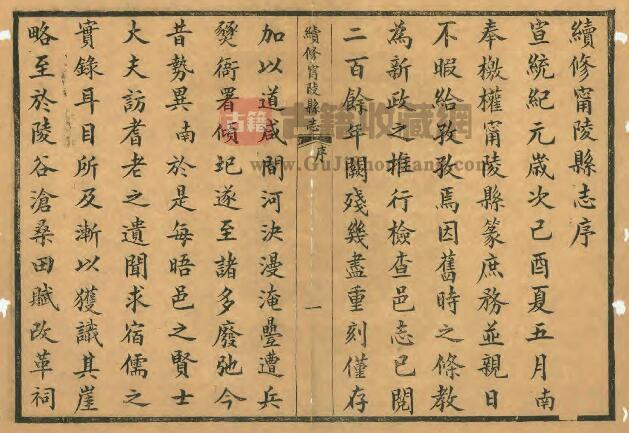 續修甯陵縣志序
宣統紀元歲次己酉夏五月南
奉檄權甯陵縣篆庶務並親日
不暇給孜孜焉因舊時之條教
為新政之推行檢查邑志已閱
二百餘年闕殘幾盡重刻僅存
續修甯陵縣志 序 一
加以道咸間河決漫淹疊遭兵
燹衙署傾圮遂至諸多廢弛今
昔勢異南於是每晤邑之賢士
大夫訪耆老之遺聞求宿儒之
實錄耳目所及漸以獲識其崖
略至於陵谷滄桑田賦改革祠
古籍 古籍收藏網